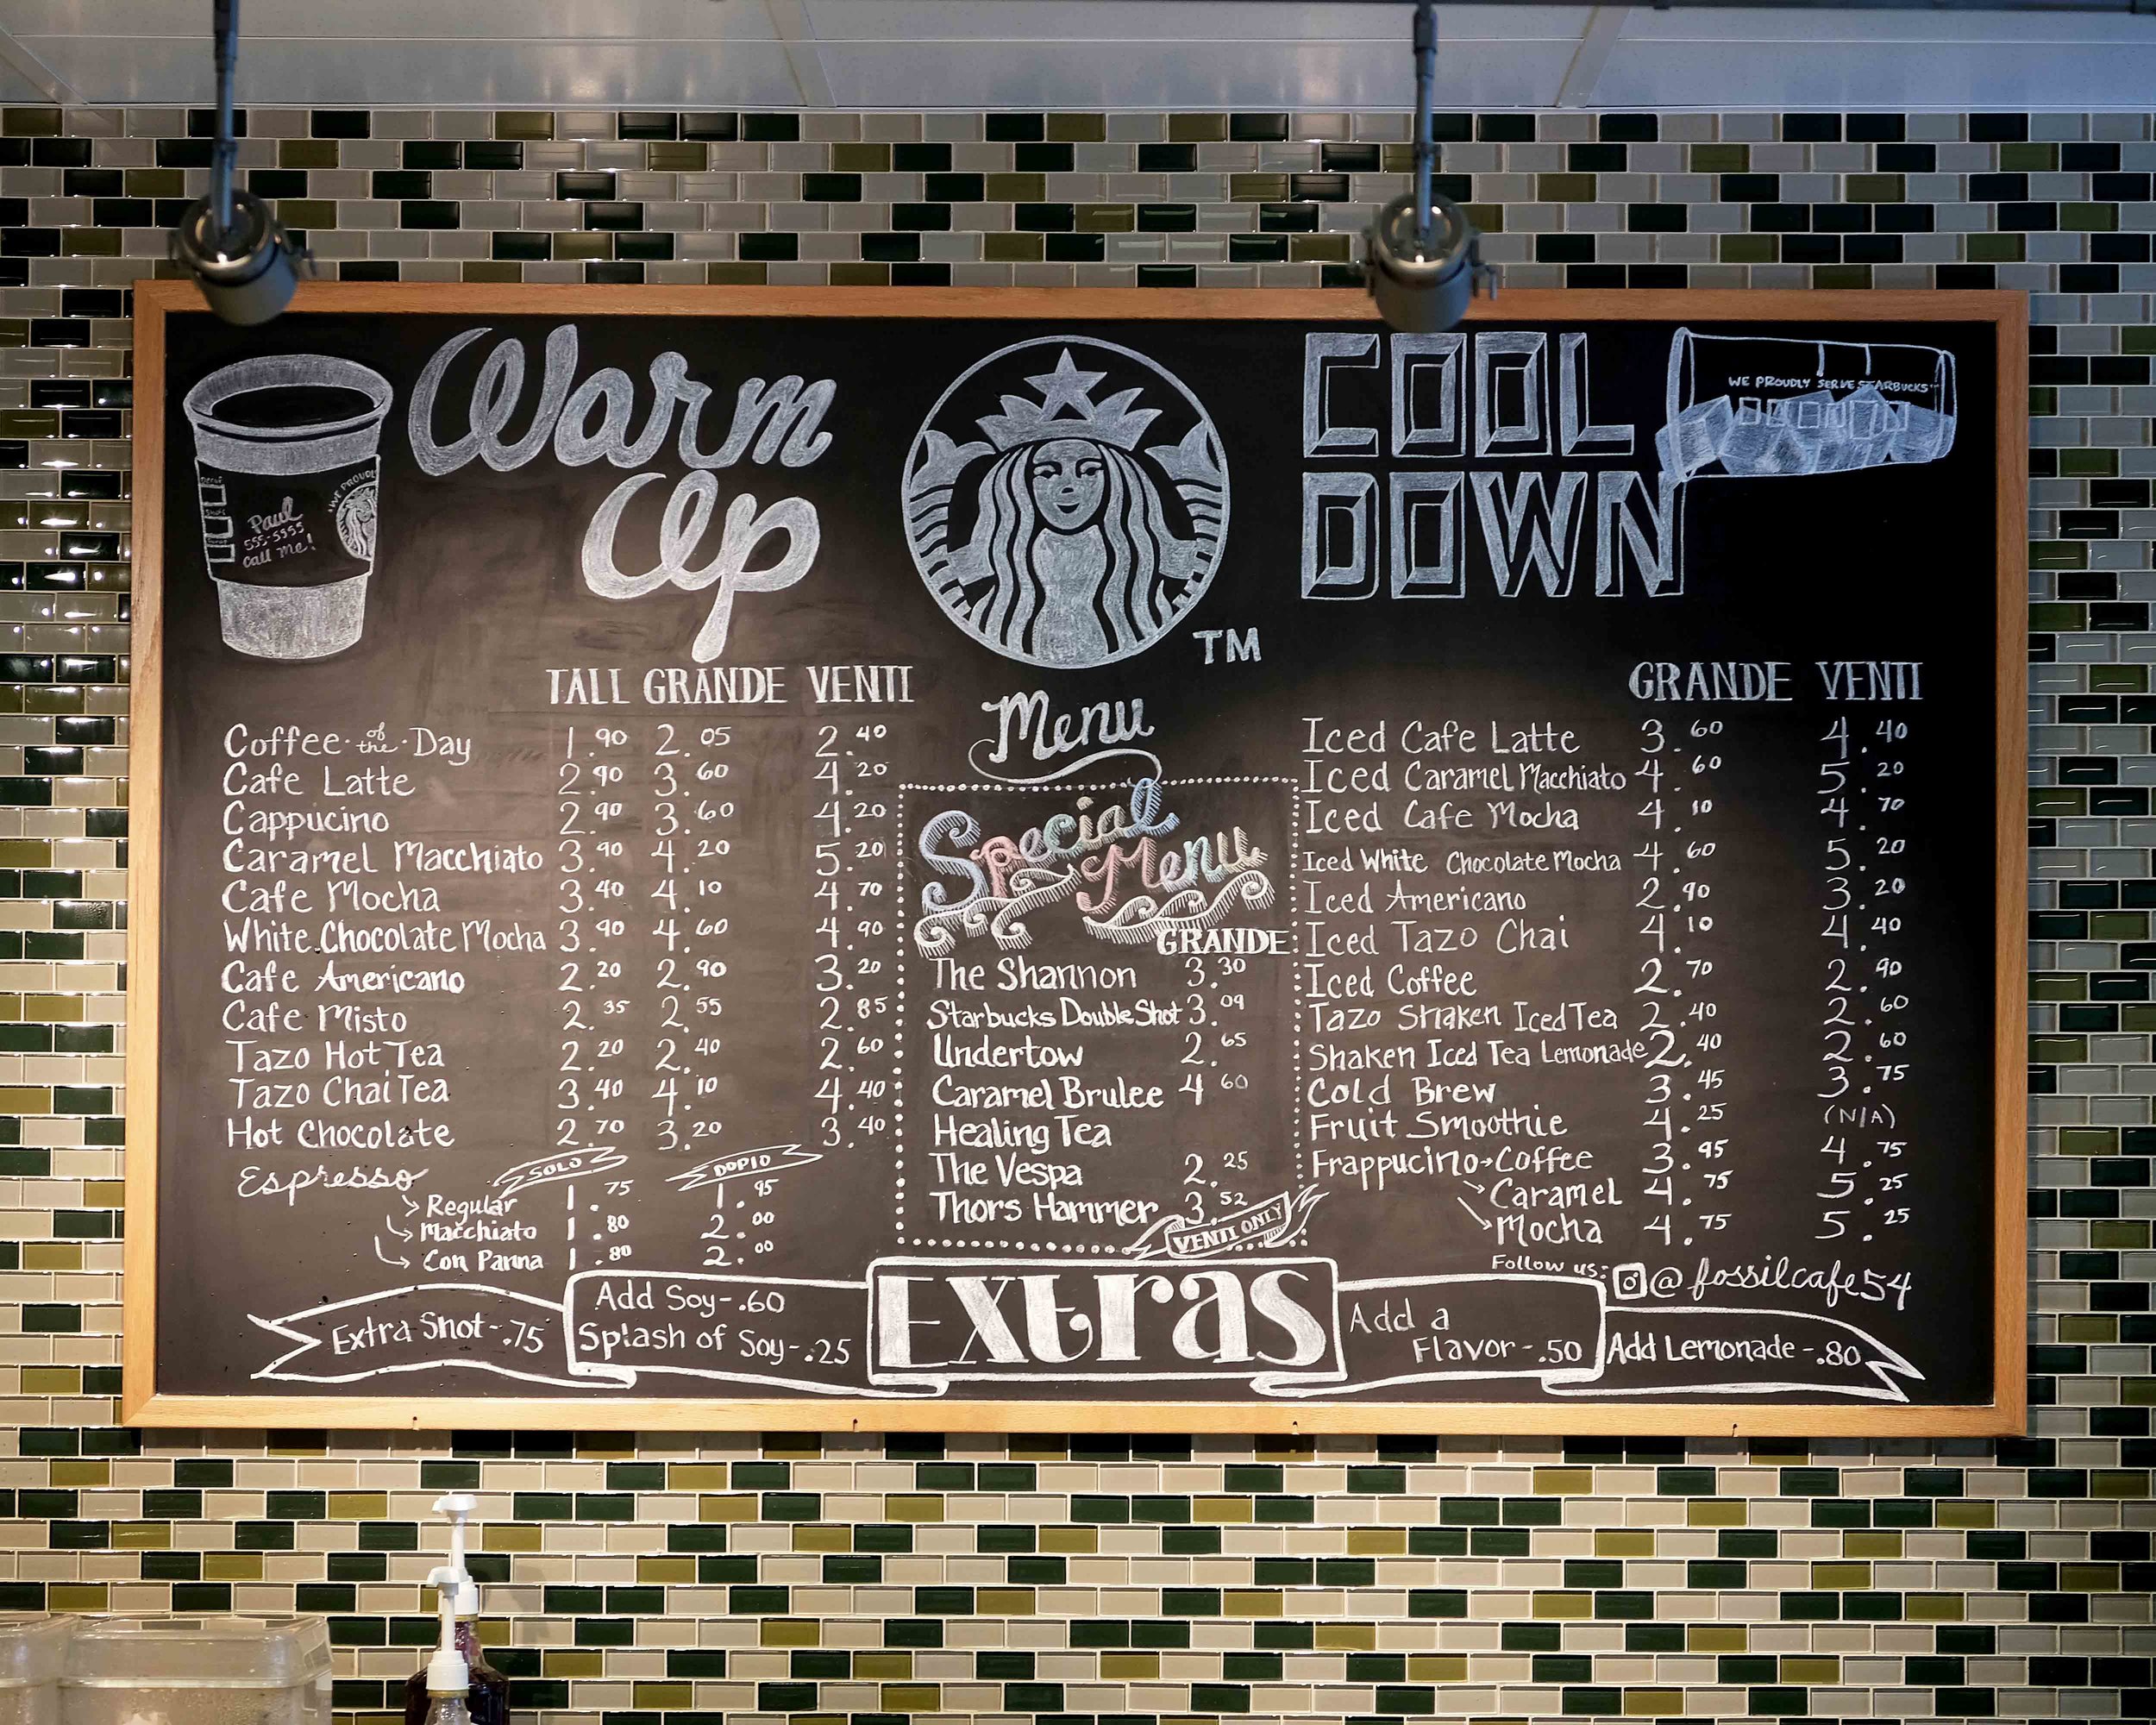 Warm
Up
Paul
555-5555
call me!
WE PROUDLY
TALL GRANDE VENTI
Coffee of the Day 1.90 2.05 2.40
Cafe Latte 2.90 3.60 4.20
Cappucino 2.90 3.60 4.20
Caramel Macchiato 3.90 4.20 5.20
Cafe Mocha 3.40 4.10 4.70
White Chocolate Mocha 3.90 4.60 4.90
Cafe Americano 2.20 2.90 3.20
Cafe Misto 2.35 2.55 2.85
Tazo Hot Tea 2.20 2.40 2.60
Tazo Chai Tea 3.40 4.10 4.40
Hot Chocolate 2.70 3.20 3.40
Espresso SOLO DOPIO
Regular 1.75 1.95
Macchiato 1.80 2.00
Con Panna 1.80 2.00
TM
Menu
Special
Menu
GRANDE
The Shannon 3.30
Starbucks Double Shot 3.09
Undertow 2.65
Caramel Brulee 4 60
Healing Tea
The Vespa 2.25
Thors Hammer 3.52
VENTI ONLY
COOL
DOWN
WE PROUDLY SERVE STARBUCKS
GRANDE VENTI
Iced Cafe Latte 3.60 4.40
Iced Caramel Macchiato 4.60 5.20
Iced Cafe Mocha 4.10 4.70
Iced White Chocolate Mocha 4.60 5.20
Iced Americano 2.90 3.20
Iced Tazo Chai 4.10 4.40
Iced Coffee 2.70 2.90
Tazo Shaken Iced Tea 2.40 2.60
Shaken Iced Tea Lemonade 2.40 2.60
Cold Brew 3.45 3.75
Fruit Smoothie 4.25 (N/A)
Frappucino→Coffee 3.95 4.75
Caramel 4.75 5.25
Mocha 4.75 5.25
Follow us: @fossilcafe54
Extra Shot-.75
Add Soy-.60
Splash of Soy-.25
Extras
Add a
Flavor-.50
Add Lemonade-.80